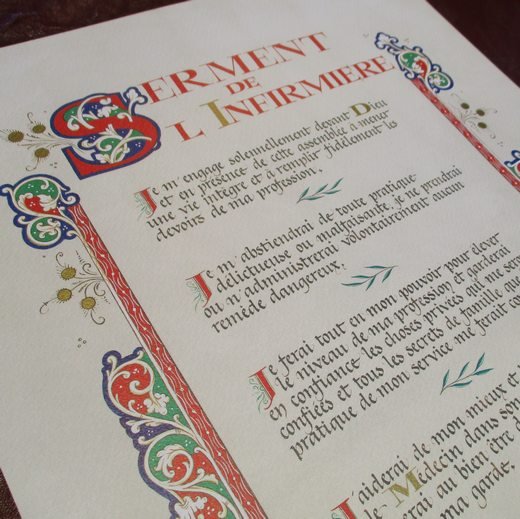 SERMENT
DE
L'INFIRMIÈRE
Je m'engage solennellement devant Dieu
et en présence de cette assemblée à mener
une vie intègre et à remplir fidèlement les
devoirs de ma profession.
Je m'abstiendrai de toute pratique
délictueuse ou malfaisante, je ne prendrai
ou n'administrerai volontairement aucun
remède dangereux.
Je ferai tout en mon pouvoir pour élever
le niveau de ma profession et garderai
en confiance les choses privés qui me
confiées et tous les secrets de famille que
pratique de mon service me ferait
J'aiderai de mon mieux
le Médecin dans son
au bien être
ma garde.